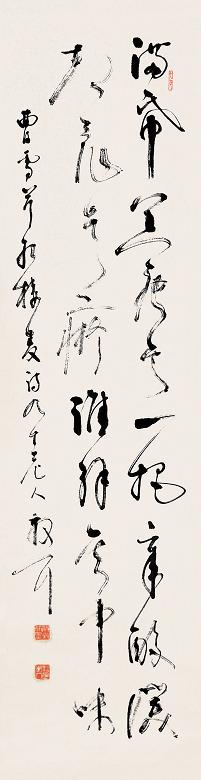 滿帋荒唐言一把辛酸淚
都云作者癡誰解其中味
曹雪芹紅樓夢詩九十老人散耳